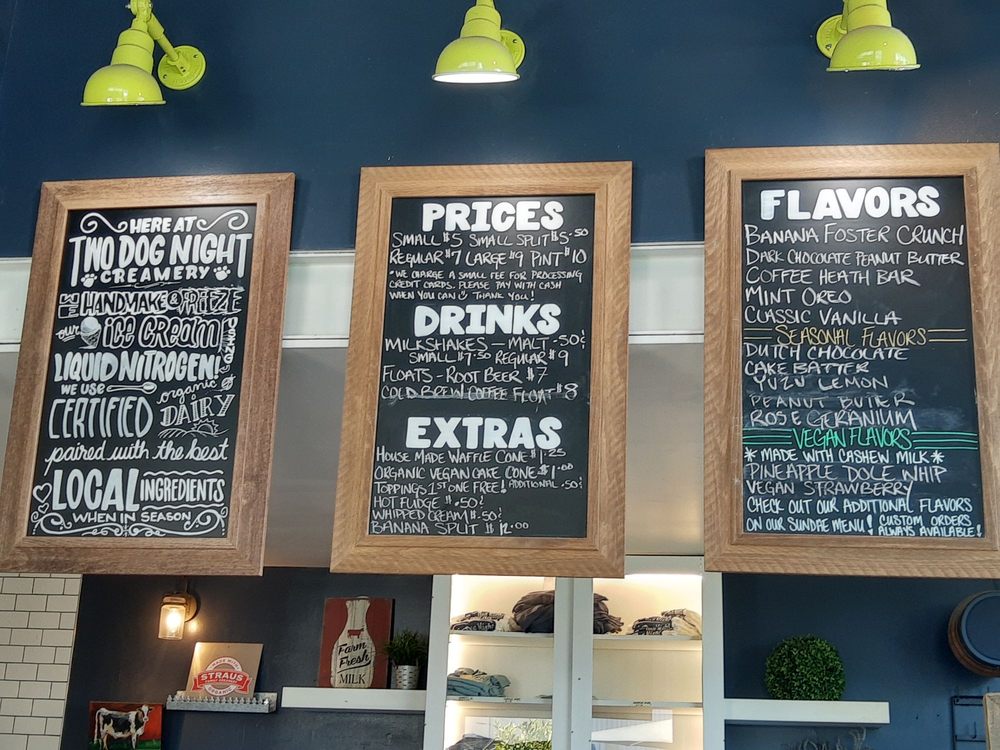 HERE AT
TWO DOG NIGHT
CREAMERY
WE HANDMAKE & FREEZE
our ice CREAM USING
LIQUID NITROGEN!
WE USE
CERTIFIED organic
DAIRY
paired with the best
LOCAL INGREDIENTS
WHEN IN SEASON
PRICES
SMALL $5 SMALL SPLIT $5.50
REGULAR $7 LARGE $9 PINT $10
*WE CHARGE A SMALL FEE FOR PROCESSING
CREDIT CARDS. PLEASE PAY WITH CASH
WHEN YOU CAN THANK YOU!
DRINKS
MILKSHAKES - MALT .50¢
SMALL $7.50 REGULAR $9
FLOATS - ROOT BEER $7
COLD BREW COFFEE FLOAT $8
EXTRAS
HOUSE MADE WAFFLE CONE $1.25
ORGANIC VEGAN CAKE CONE $1.00
TOPPINGS 1ST ONE FREE! ADDITIONAL .50¢
HOT FUDGE .50¢
WHIPPED CREAM .50¢
BANANA SPLIT $12.00
FLAVORS
BANANA FOSTER CRUNCH
DARK CHOCOLATE PEANUT BUTTER
COFFEE HEATH BAR
MINT OREO
CLASSIC VANILLA
SEASONAL FLAVORS
DUTCH CHOCOLATE
CAKE BATTER
YUZU LEMON
PEANUT BUTTER
ROSE GERANIUM
VEGAN FLAVORS
*MADE WITH CASHEW MILK*
PINEAPPLE DOLE WHIP
VEGAN STRAWBERRY
CHECK OUT OUR ADDITIONAL FLAVORS
ON OUR SUNDAE MENU! CUSTOM ORDERS
ALWAYS AVAILABLE!
STRAUS
FAMILY CREAMERY
ORGANIC
Farm
Fresh
MILK